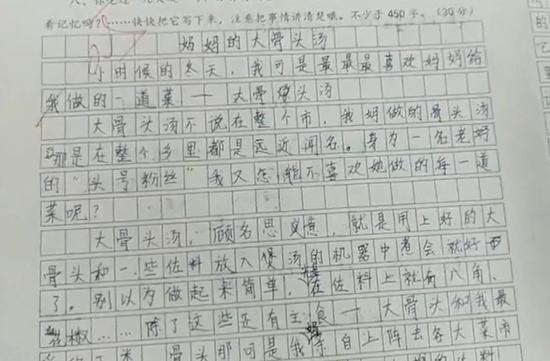 看记忆吗?……快快把它写下来,注意把事情讲清楚哦。不少于450字。(30分)
妈妈的大骨头汤
小时候的冬天,我可是最最最喜欢妈妈给
我做的一道菜——大骨头汤
大骨头汤不说在整个市,我妈做的骨头汤
那是在整个乡里都是远近闻名。身为一名老妈
的“头号粉丝”我又怎能不喜欢她做的每一道
菜呢?
大骨头汤,顾名思义意,就是用上好的大
骨头和一些佐料放入煲汤的机器中煮会就好
了。别以为做起来简单,在佐料上就有八角、
椒……除了这些还有主食——大骨头和我最
骨头那可是我亲自上阵去各大菜市